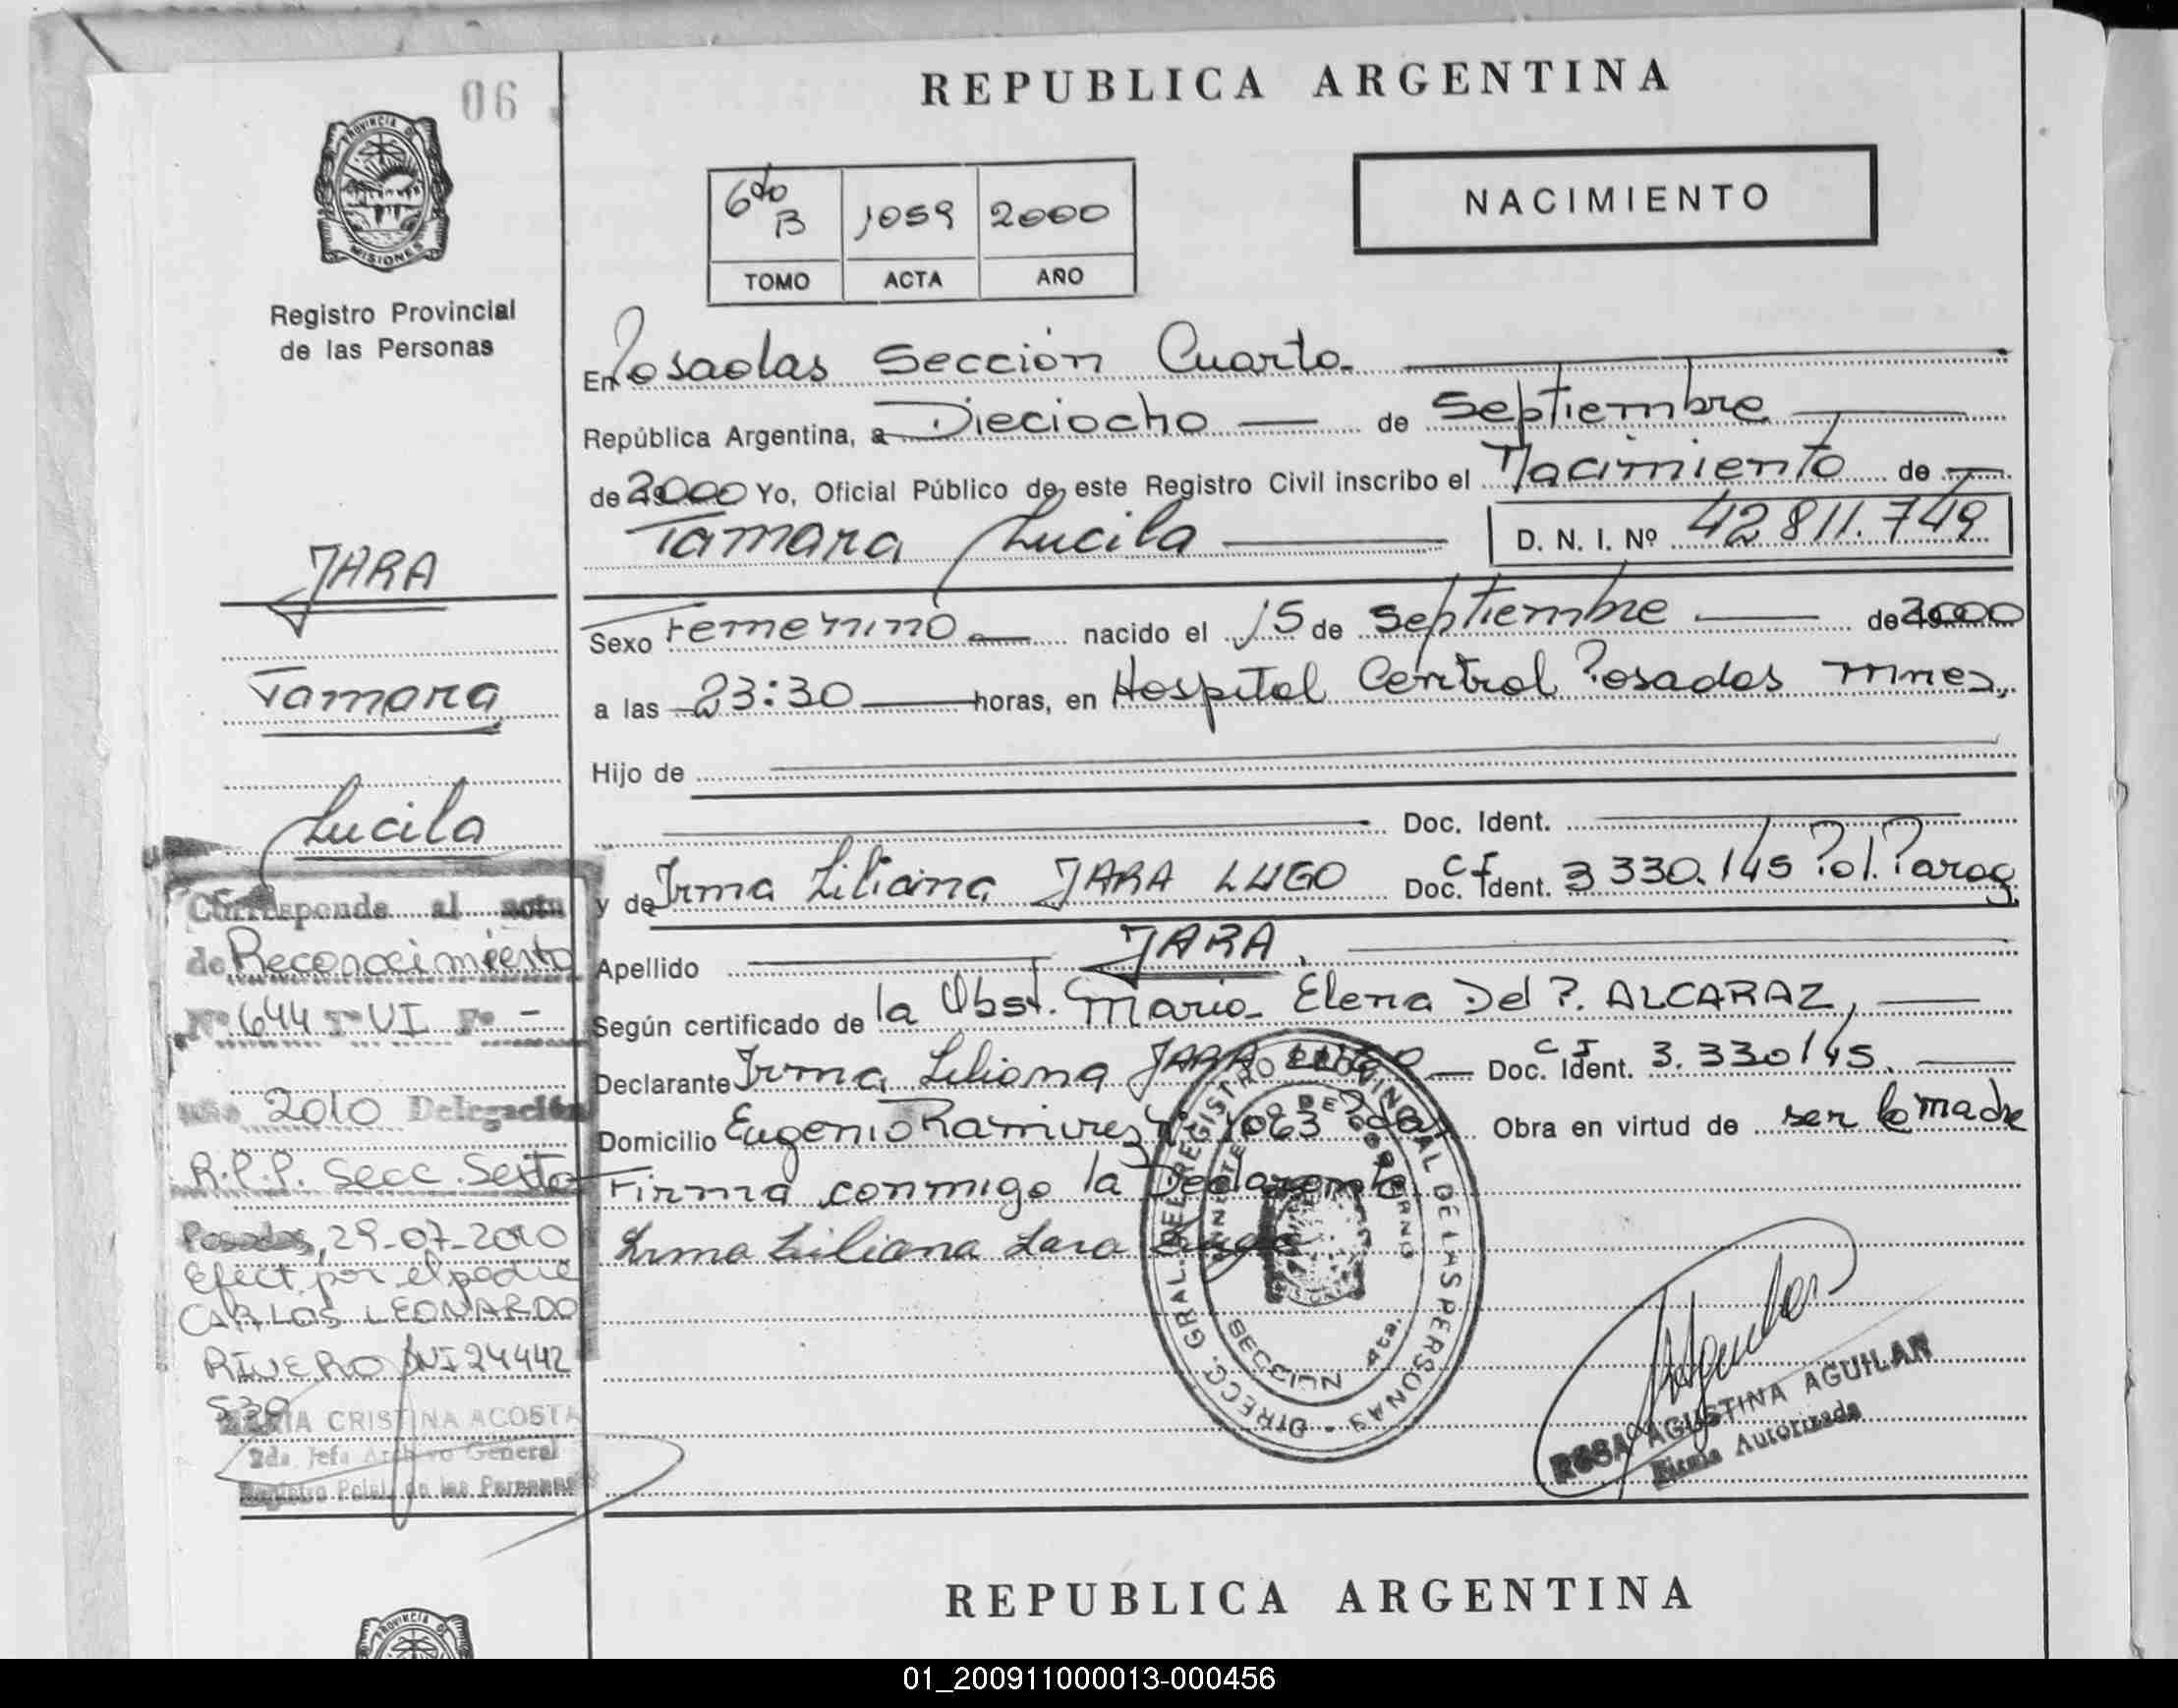 06
REPUBLICA ARGENTINA
PROVINCIA DE
MISIONES
Registro Provincial
de las Personas
6to B 1059 2000
TOMO ACTA AÑO
NACIMIENTO
En Posadas Sección Cuarta
República Argentina, a Dieciocho de Septiembre
de 2000 Yo, Oficial Público de este Registro Civil inscribo el Nacimiento de
Tamara Lucila D. N. I. Nº 42 811.749
Sexo Femenino nacido el 15 de Septiembre de 2000
a las 23:30 horas, en Hospital Central Posadas Mnes,
Hijo de
Doc. Ident.
y de Irma Liliana JARA LUGO Doc. C I Ident. 3 330.145 Pol. Parag
Apellido JARA.
Según certificado de la Obst. Maria Elena Del P. ALCARAZ,
Declarante Irma Liliana JARA LUGO Doc. C I Ident. 3.330145.
Domicilio Eugenio Ramirez Nº 1063 Pdas Obra en virtud de ser la madre
Firma conmigo la Declarante
Irma Liliana Jara Lugo
DIRECC. GRAL. DEL REGISTRO PROVINCIAL DE LAS PERSONAS
DE GOBIERNO
SECCION 4ta.
ROSA AGUSTINA AGUILAR
Firma Autorizada
JARA
Tamara
Lucila
Corresponde al acta
de Reconocimiento
Nº 644 Tº VI Fº -
Año 2010 Delegación
R.P.P. Secc. Sexta
Posadas, 29-07-2010
Efect. por el padre
CARLOS LEONARDO
RIVERO DNI 24442
539
MARIA CRISTINA ACOSTA
2da. Jefa Archivo General
Registro Pcial. de las Personas
REPUBLICA ARGENTINA
PROVINCIA
01_200911000013-000456